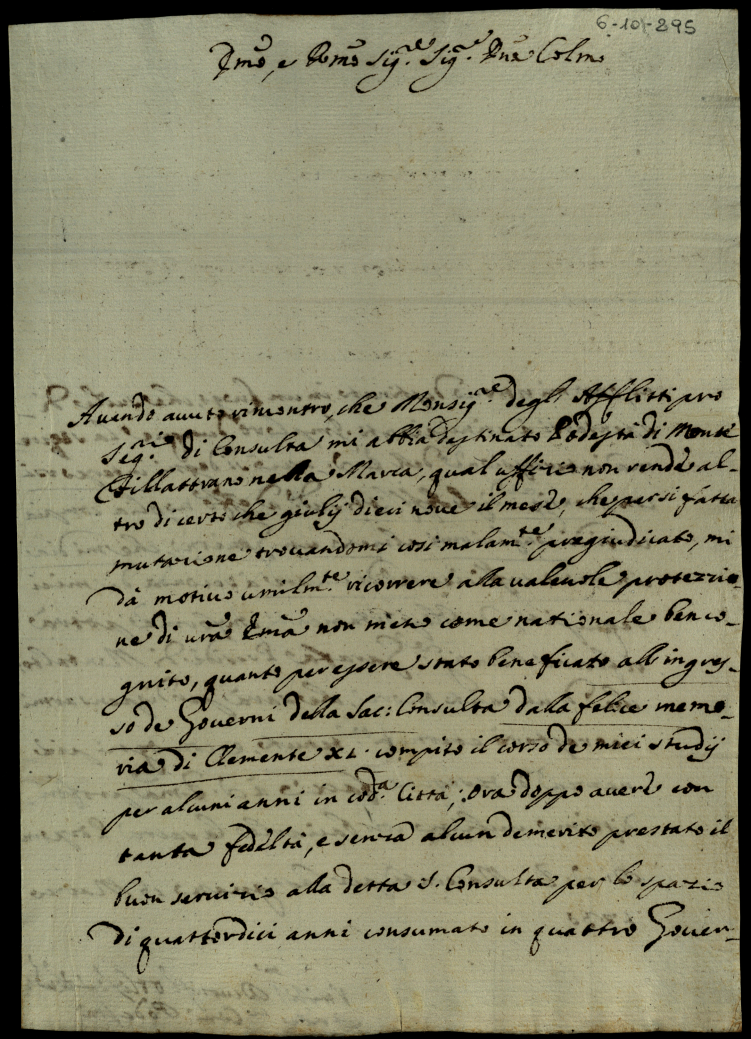 6-10-295
Emõ, e Rmõ Sigr.e Sig.re Pnẽ Colmõ
Avendo avuto rincontro, che Monsig.re degl'Afflitti pro
Seg.rio di Consulta mi abbia destinato Podestà di Monte
Fillattrano nella Marca, qual uffizio non rende al-
tro di certo che giulij dieci nove il mese, che per si fatta
mutazione trovandomi così malam.te pregiudicato, mi
dà motivo umilm.te ricorrere alla valevole protezzio-
ne di vrã Emã non meno come nationale ben co-
gnito, quanto per essere stato beneficato all'ingres-
so de Governi della Sac: Consulta dalla felice memo-
ria di Clemente XI. compito il corso de miei studij
per alcuni anni in cod.a Città; ora doppo avere con
tanta fedeltà, e senza alcun demerito prestato il
buon servizio alla detta S. Consulta per lo spazio
di quattordici anni consumato in quattro Gover-